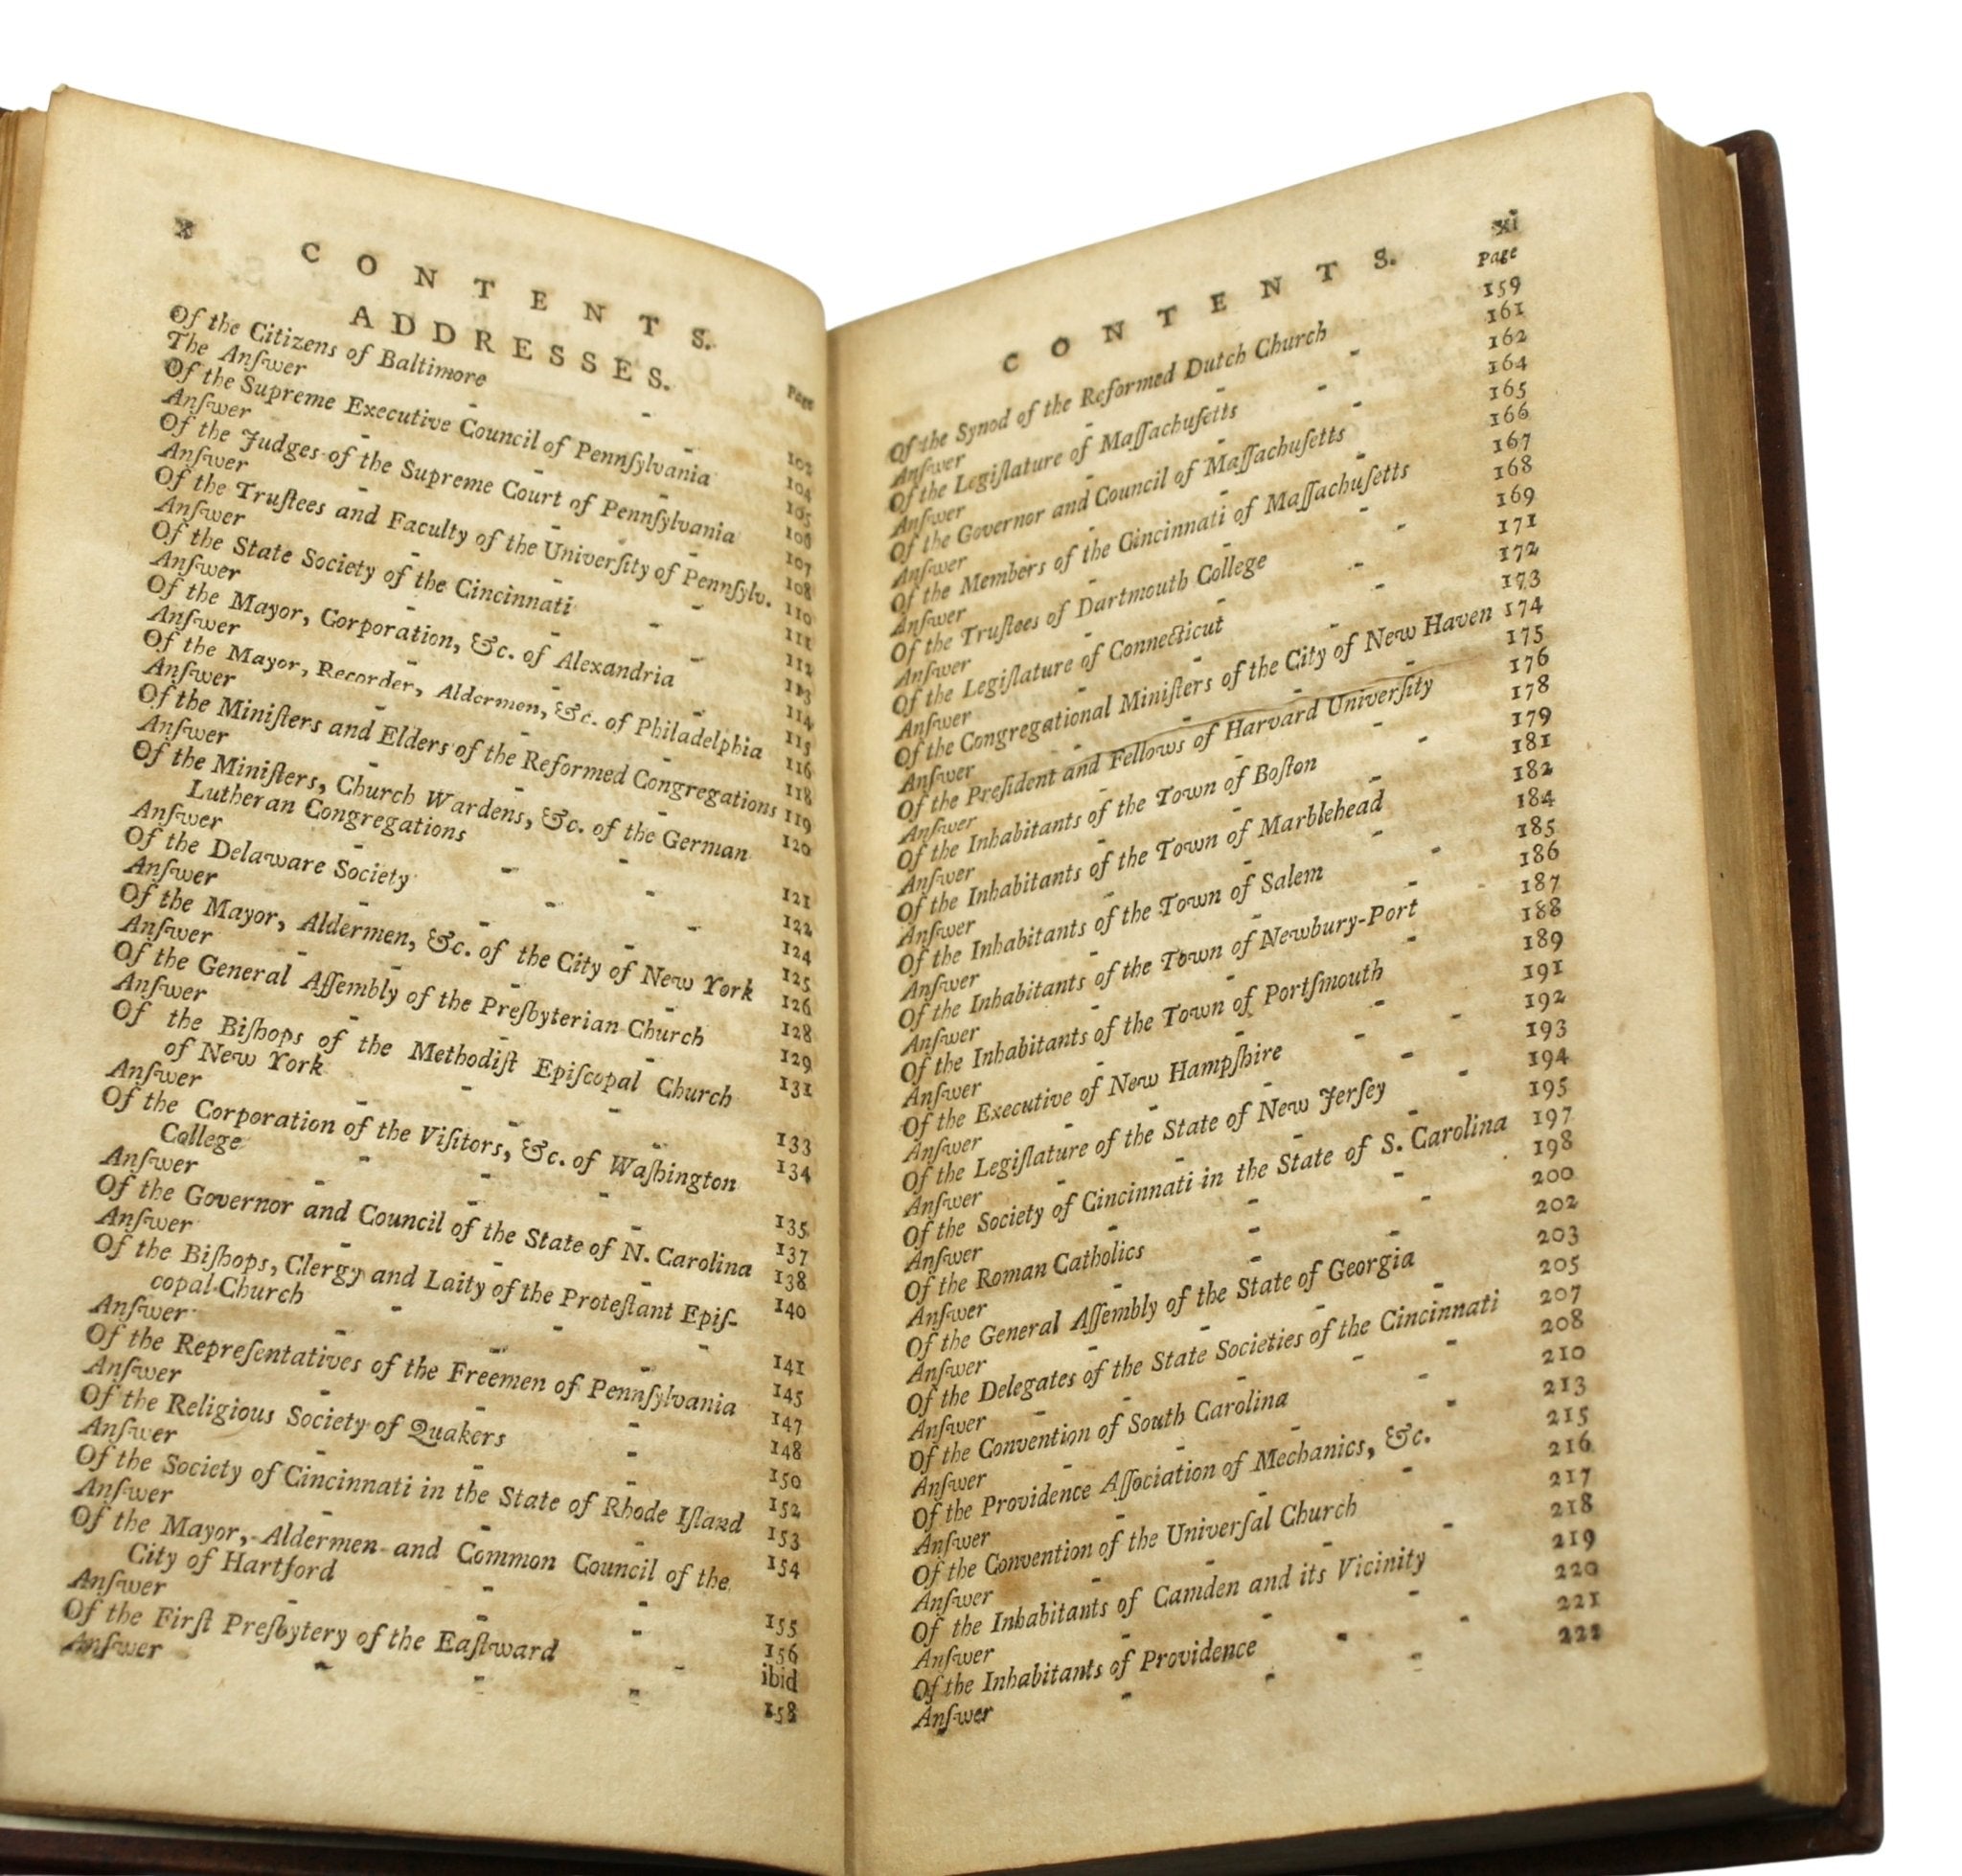 x
CONTENTS.
ADDRESSES.
Page
Of the Citizens of Baltimore - -
The Anſwer - - 104
Of the Supreme Executive Council of Pennſylvania 105
Anſwer - - - 106
Of the Judges of the Supreme Court of Pennſylvania 107
Anſwer - - - 108
Of the Truſtees and Faculty of the Univerſity of Pennſylv. 110
Anſwer - - - 111
Of the State Society of the Cincinnati - 112
Anſwer - - - 113
Of the Mayor, Corporation, &c. of Alexandria - 114
Anſwer - - - 115
Of the Mayor, Recorder, Aldermen, &c. of Philadelphia 116
Anſwer - - - 118
Of the Miniſters and Elders of the Reformed Congregations 119
Anſwer - - - 120
Of the Miniſters, Church Wardens, &c. of the German
Lutheran Congregations - - 121
Anſwer - - - 122
Of the Delaware Society - - 124
Anſwer - - - 125
Of the Mayor, Aldermen, &c. of the City of New York 126
Anſwer - - - 128
Of the General Aſſembly of the Preſbyterian Church 129
Anſwer - - - 131
Of the Biſhops of the Methodiſt Epiſcopal Church
of New York - - - 133
Anſwer - - - 134
Of the Corporation of the Viſitors, &c. of Waſhington
College - - - 135
Anſwer - - - 137
Of the Governor and Council of the State of N. Carolina 138
Anſwer - - - 140
Of the Biſhops, Clergy and Laity of the Proteſtant Epiſ-
copal Church - - - 141
Anſwer - - - 145
Of the Repreſentatives of the Freemen of Pennſylvania 147
Anſwer - - - 148
Of the Religious Society of Quakers - 150
Anſwer - - - 152
Of the Society of Cincinnati in the State of Rhode Iſland 153
Anſwer - - - 154
Of the Mayor, Aldermen and Common Council of the
City of Hartford - - 155
Anſwer - - - 156
Of the Firſt Preſbytery of the Eaſtward - ibid
Anſwer - - - 158
xi
CONTENTS.
Page
Of the Synod of the Reformed Dutch Church 159
Anſwer - - - 161
Of the Legiſlature of Maſſachuſetts - 162
Anſwer - - - 164
Of the Governor and Council of Maſſachuſetts 165
Anſwer - - - 166
Of the Members of the Cincinnati of Maſſachuſetts 167
Anſwer - - - 168
Of the Truſtees of Dartmouth College - 169
Anſwer - - - 171
Of the Legiſlature of Connecticut - 172
Anſwer - - - 173
Of the Congregational Miniſters of the City of New Haven 174
Anſwer - - - 175
Of the Preſident and Fellows of Harvard Univerſity 176
Anſwer - - - 178
Of the Inhabitants of the Town of Boſton - 179
Anſwer - - - 181
Of the Inhabitants of the Town of Marblehead 182
Anſwer - - - 184
Of the Inhabitants of the Town of Salem - 185
Anſwer - - - 186
Of the Inhabitants of the Town of Newbury-Port 187
Anſwer - - - 188
Of the Inhabitants of the Town of Portſmouth 189
Anſwer - - - 191
Of the Executive of New Hampſhire - 192
Anſwer - - - 193
Of the Legiſlature of the State of New Jerſey - 194
Anſwer - - - 195
Of the Society of Cincinnati in the State of S. Carolina 197
Anſwer - - - 198
Of the Roman Catholics - - 200
Anſwer - - - 202
Of the General Aſſembly of the State of Georgia 203
Anſwer - - - 205
Of the Delegates of the State Societies of the Cincinnati 207
Anſwer - - - 208
Of the Convention of South Carolina - 210
Anſwer - - - 213
Of the Providence Aſſociation of Mechanics, &c. 215
Anſwer - - - 216
Of the Convention of the Univerſal Church - 217
Anſwer - - - 218
Of the Inhabitants of Camden and its Vicinity 219
Anſwer - - - 220
Of the Inhabitants of Providence - - 221
Anſwer - - - 222